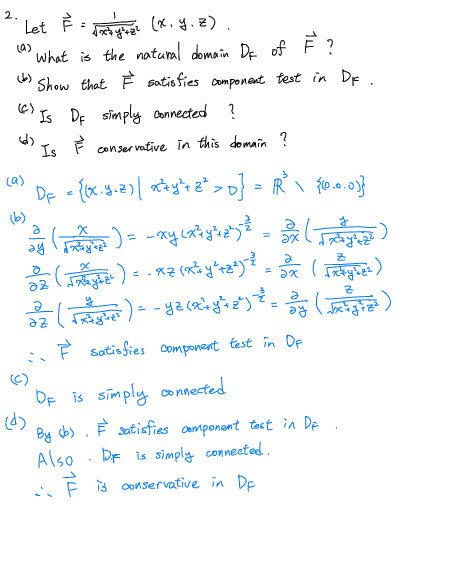 2. Let F⃗ = 1/√(x²+y²+z²) (x, y, z).
(a) What is the natural domain D_F of F⃗ ?
(b) Show that F⃗ satisfies component test in D_F.
(c) Is D_F simply connected ?
(d) Is F⃗ conservative in this domain ?
(a) D_F = {(x,y,z) | x²+y²+z² > 0} = ℝ³ \ {(0,0,0)}
(b) ∂/∂y (x/√(x²+y²+z²)) = -xy(x²+y²+z²)^(-3/2) = ∂/∂x (y/√(x²+y²+z²))
∂/∂z (x/√(x²+y²+z²)) = -xz(x²+y²+z²)^(-3/2) = ∂/∂x (z/√(x²+y²+z²))
∂/∂z (y/√(x²+y²+z²)) = -yz(x²+y²+z²)^(-3/2) = ∂/∂y (z/√(x²+y²+z²))
∴ F⃗ satisfies component test in D_F
(c) D_F is simply connected
(d) By (b), F⃗ satisfies component test in D_F.
Also, D_F is simply connected.
∴ F⃗ is conservative in D_F